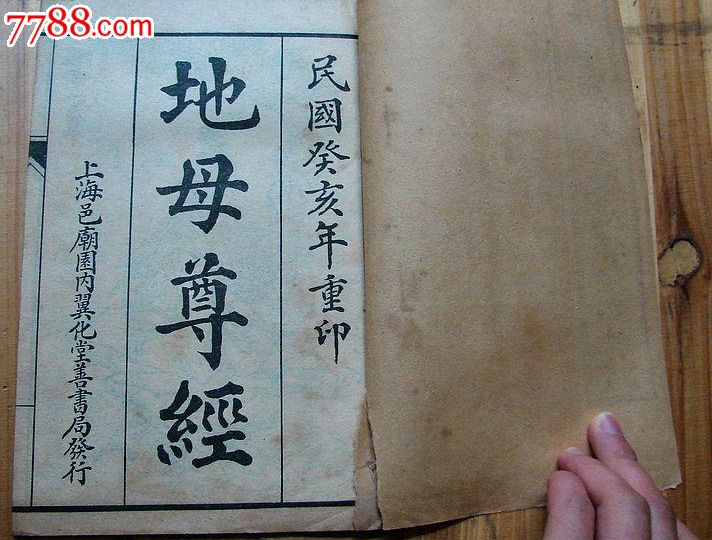 7788.com
民國癸亥年重印
地母尊經
上海邑廟園內翼化堂善書局發行